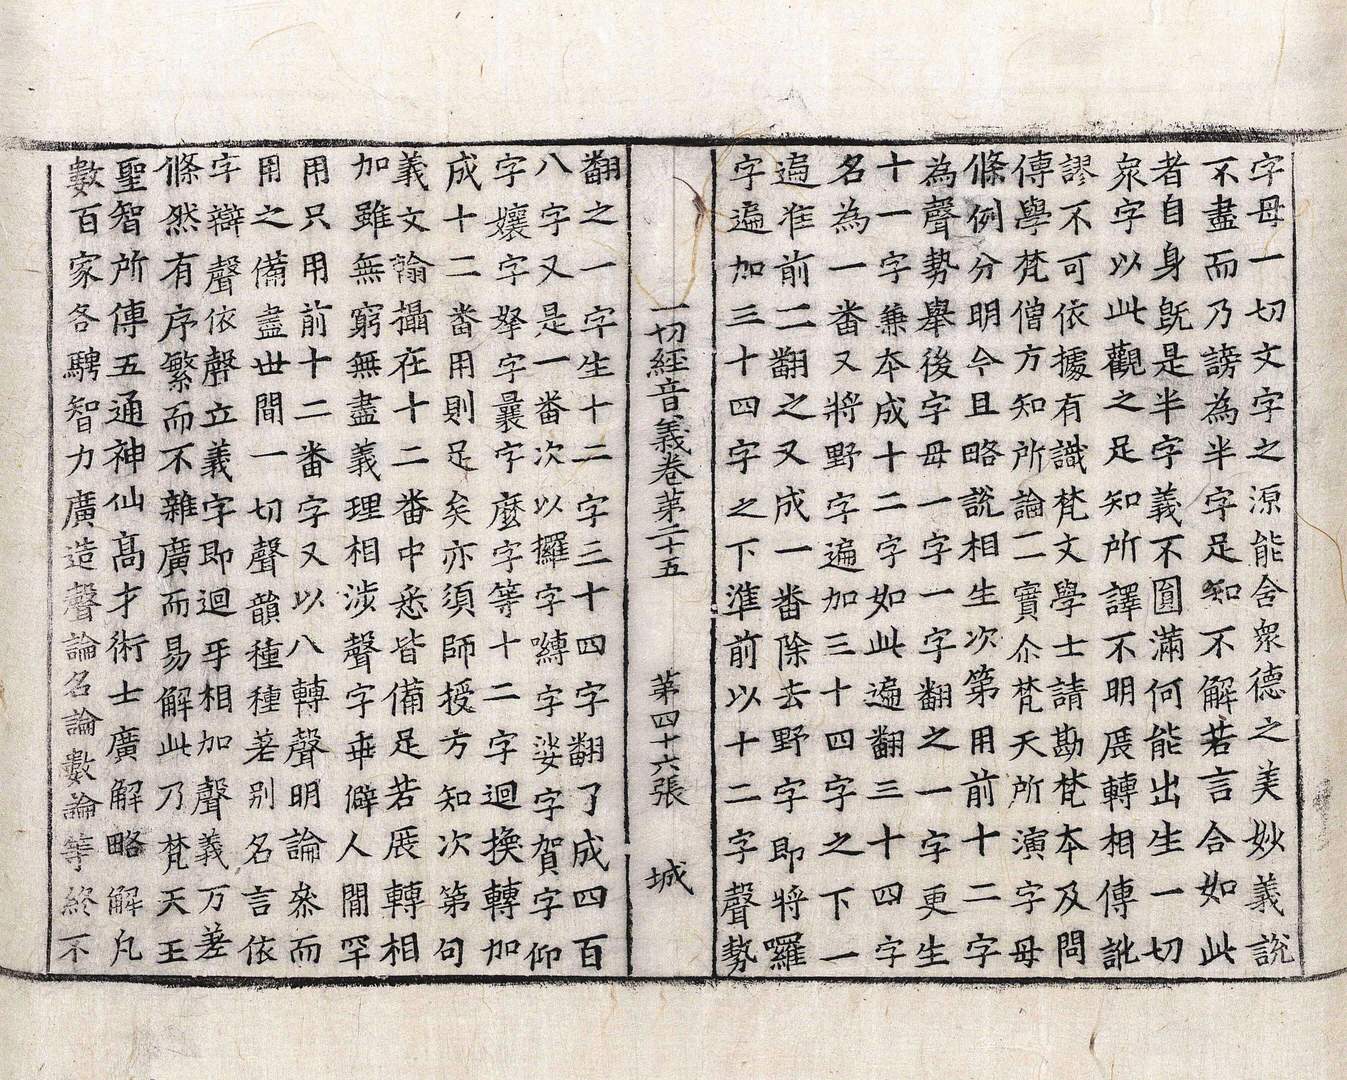 字母一切文字之源能含衆德之美妙義說
不盡而乃謗為半字足知不解若言合如此
者自身旣是半字義不圓滿何能出生一切
衆字以此觀之足知所譯不明展轉相傳訛
謬不可依據有識梵文學士請勘梵本及問
傳學梵僧方知所論二實尒梵天所演字母
條例分明今且略說相生次第用前十二字
為聲勢舉後字母一字一字翻之一字更生
十一字兼本成十二字如此遍翻三十四字
名為一番又將野字遍加三十四字之下一
遍准前二翻之又成一番除去野字即將囉
字遍加三十四字之下準前以十二字聲勢
一切經音義卷第二十五　第四十六張　城
翻之一字生十二字三十四字翻了成四百
八字又是一番次以攞字嚩字娑字賀字仰
字孃字拏字曩字麼字等十二字迴換轉加
成十二番用則足矣亦須師授方知次第句
義文翰攝在十二番中悉皆備足若展轉相
加雖無窮無盡義理相涉聲字乖僻人間罕
用只用前十二番字又以八轉聲明論叅而
用之備盡世間一切聲韻種種差別名言依
字辯聲依聲立義字即迴乎相加聲義万差
條然有序繁而不雜廣而易解此乃梵天王
聖智所傳五通神仙高才術士廣解略解凡
數百家各騁智力廣造聲論名論數論等終不